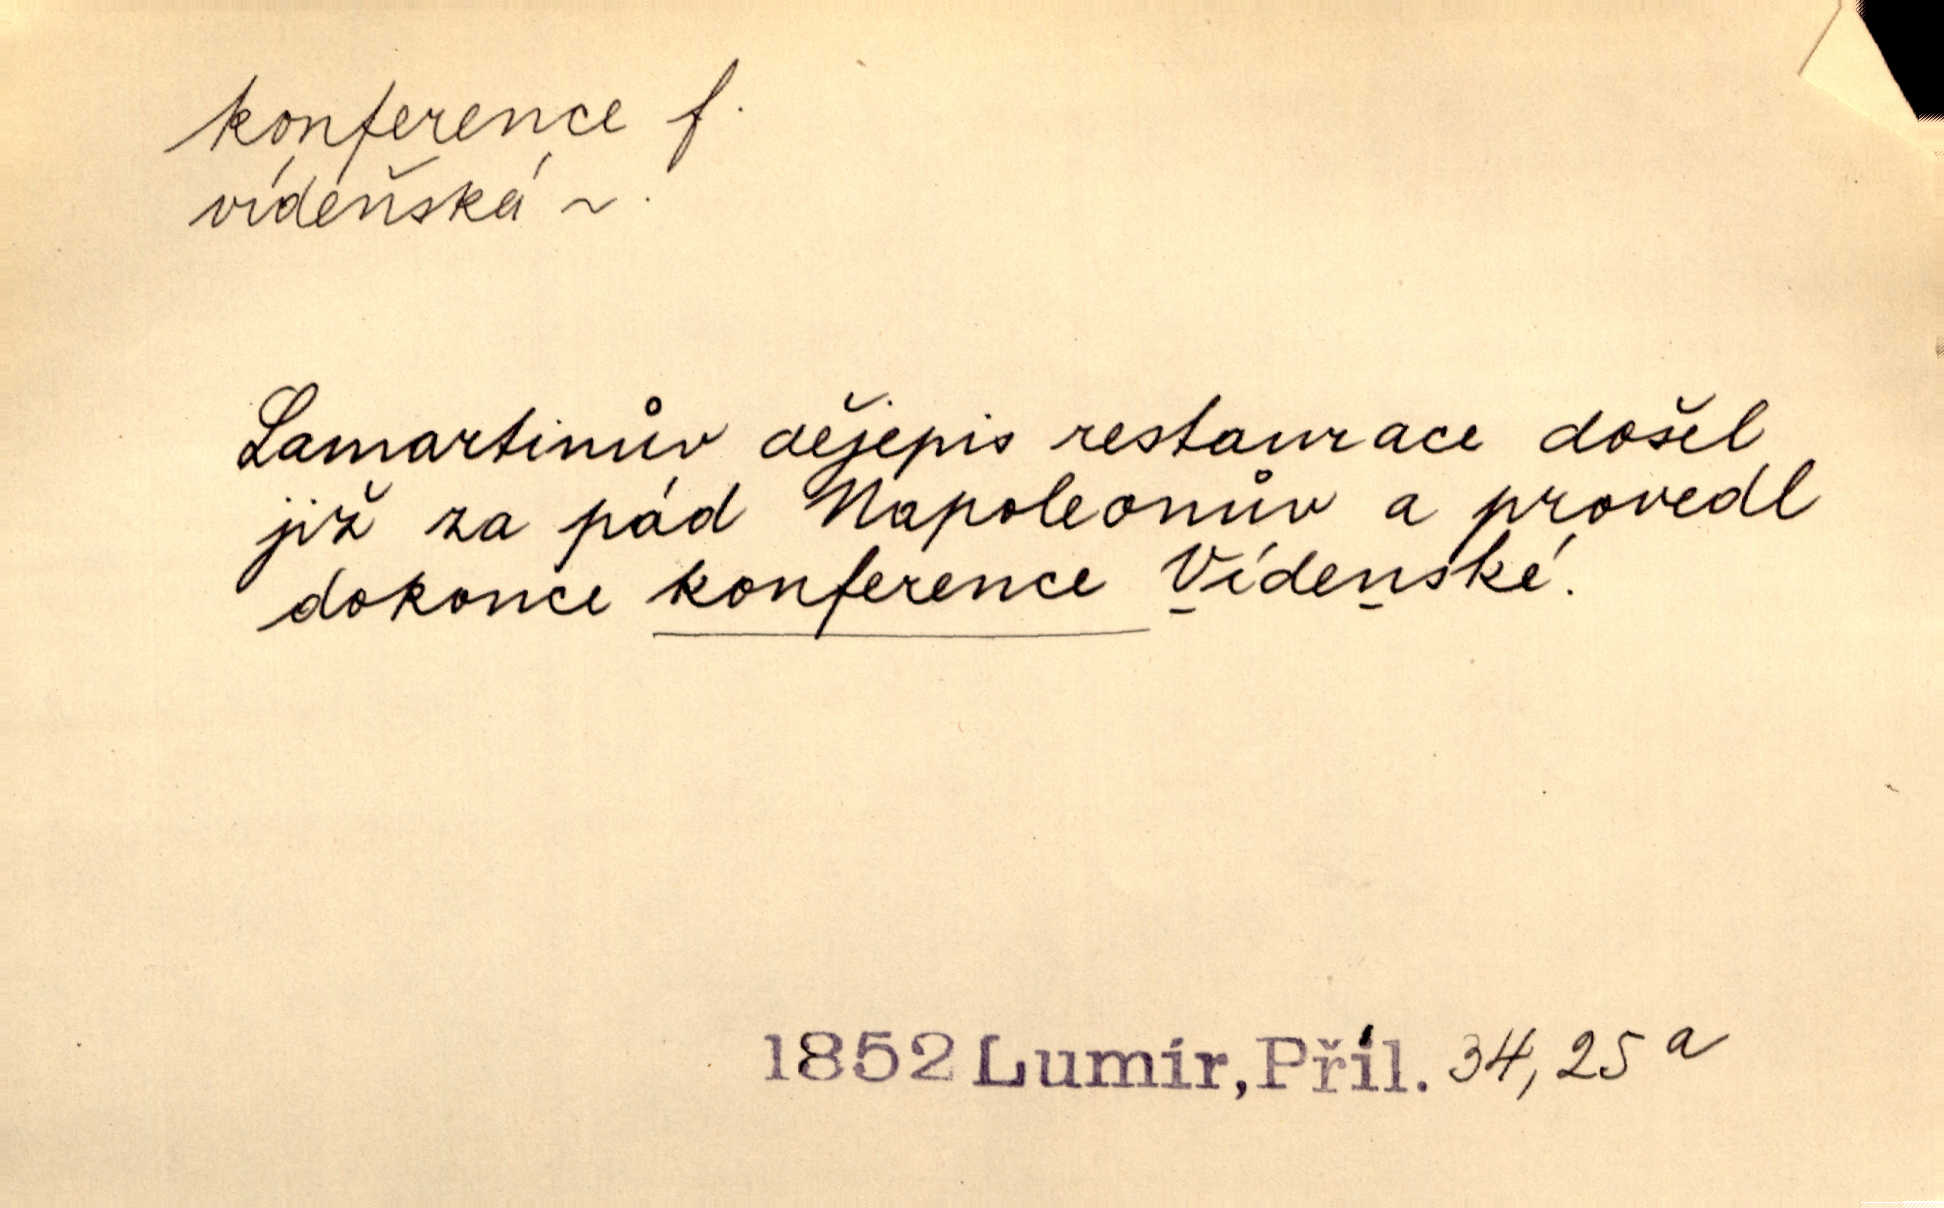 konference f.
vídeňská ~.
Lamartinův dějepis restaurace došel
již za pád Napoleonův a provedl
dokonce konference Vídenské.
1852 Lumír, Příl. 34, 25 a